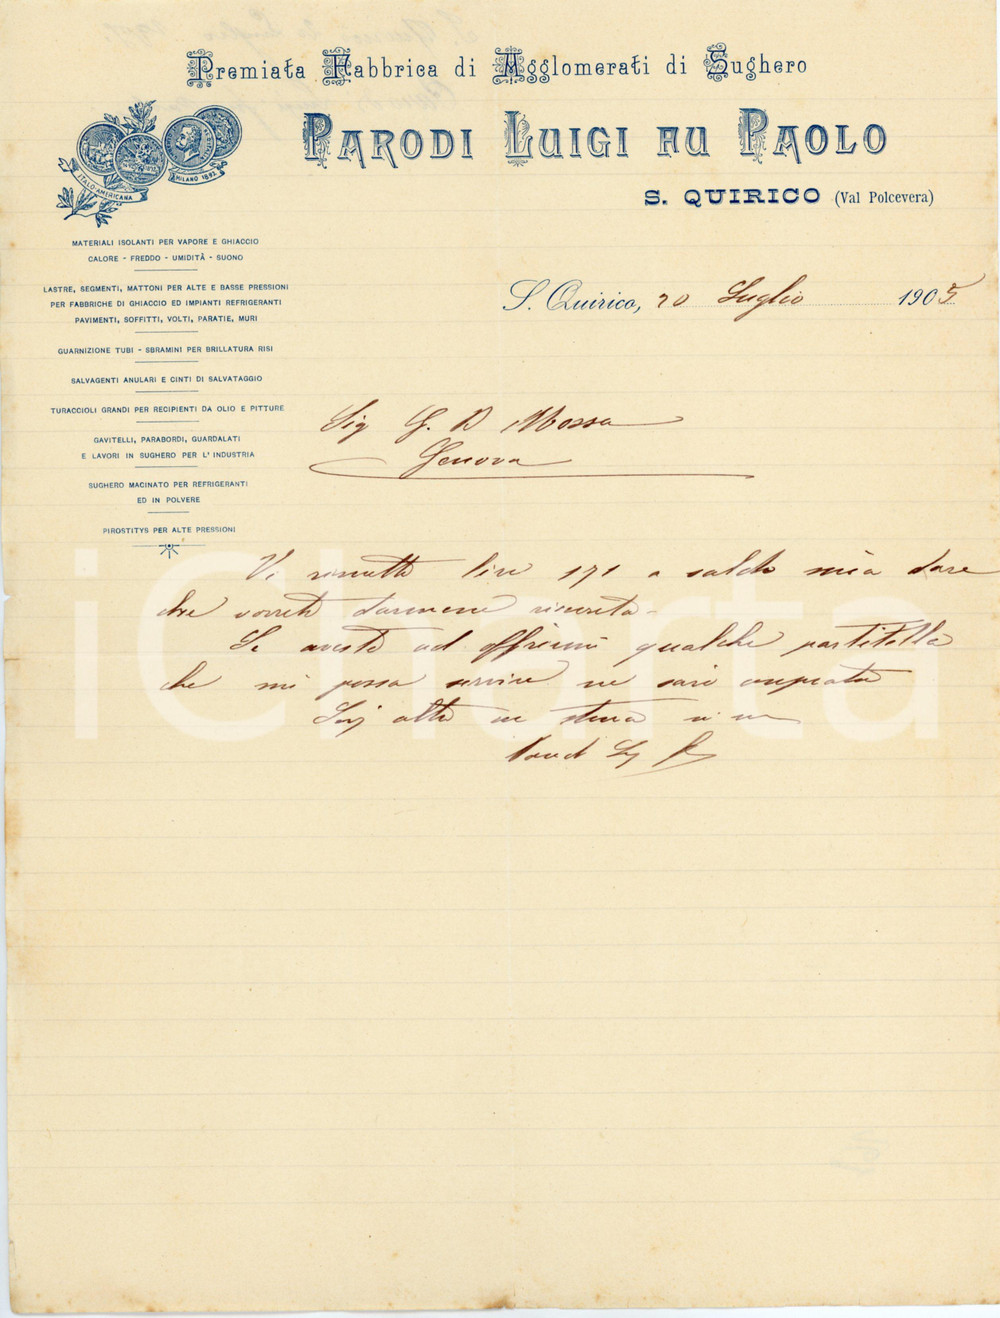 Premiata Fabbrica di Agglomerati di Sughero
PARODI LUIGI FU PAOLO
S. QUIRICO (Val Polcevera)
ITALO-AMERICANA
MILANO 1892
MATERIALI ISOLANTI PER VAPORE E GHIACCIO
CALORE - FREDDO - UMIDITÀ - SUONO
LASTRE, SEGMENTI, MATTONI PER ALTE E BASSE PRESSIONI
PER FABBRICHE DI GHIACCIO ED IMPIANTI REFRIGERANTI
PAVIMENTI, SOFFITTI, VOLTI, PARATIE, MURI
GUARNIZIONE TUBI - SBRAMINI PER BRILLATURA RISI
SALVAGENTI ANULARI E CINTI DI SALVATAGGIO
TURACCIOLI GRANDI PER RECIPIENTI DA OLIO E PITTURE
GAVITELLI, PARABORDI, GUARDALATI
E LAVORI IN SUGHERO PER L'INDUSTRIA
SUGHERO MACINATO PER REFRIGERANTI
ED IN POLVERE
PIROSTITYS PER ALTE PRESSIONI
S. Quirico, 20 Luglio 1905
Sig G. B Mossa
Genova
Vi rimetto lire 171 a saldo mio dare
che vorrete darmene ricevuta -
Se aveste ad offrirmi qualche partitella
che mi possa servire ne sarò
iCharta